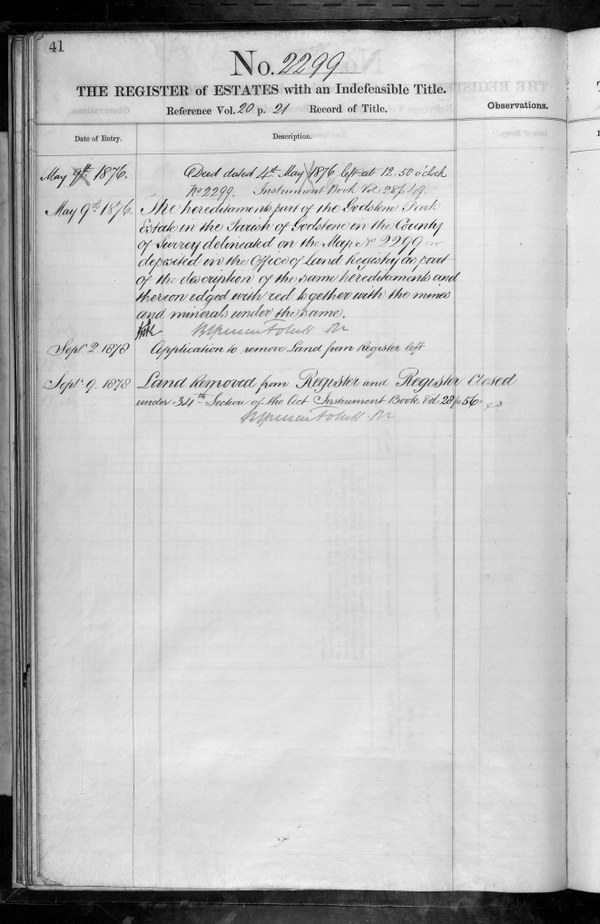 41
No. 2299
THE REGISTER of ESTATES with an Indefeasible Title.
Reference Vol. 20 p. 21 Record of Title.
Observations.
Date of Entry.
Description.
May 9th 1876.
Deed dated 4th May 1876 left at 12.50 o'clock
No 2299. Instrument Book Vol 28 p
May 9th 1876.
The hereditaments part of the Godstone Park
Estate in the Parish of Godstone in the County
of Surrey delineated on the Map No 2299
deposited in the Office of Land Registry as part
of the description of the same hereditaments and
thereon edged with red together with the mines
and minerals under the same.
Sept 2 1878
Application to remove Land from Register left
Sept. 9. 1878
Land Removed from Register and Register Closed
under 34th Section of the Act Instrument Book Vol 28 p 56.